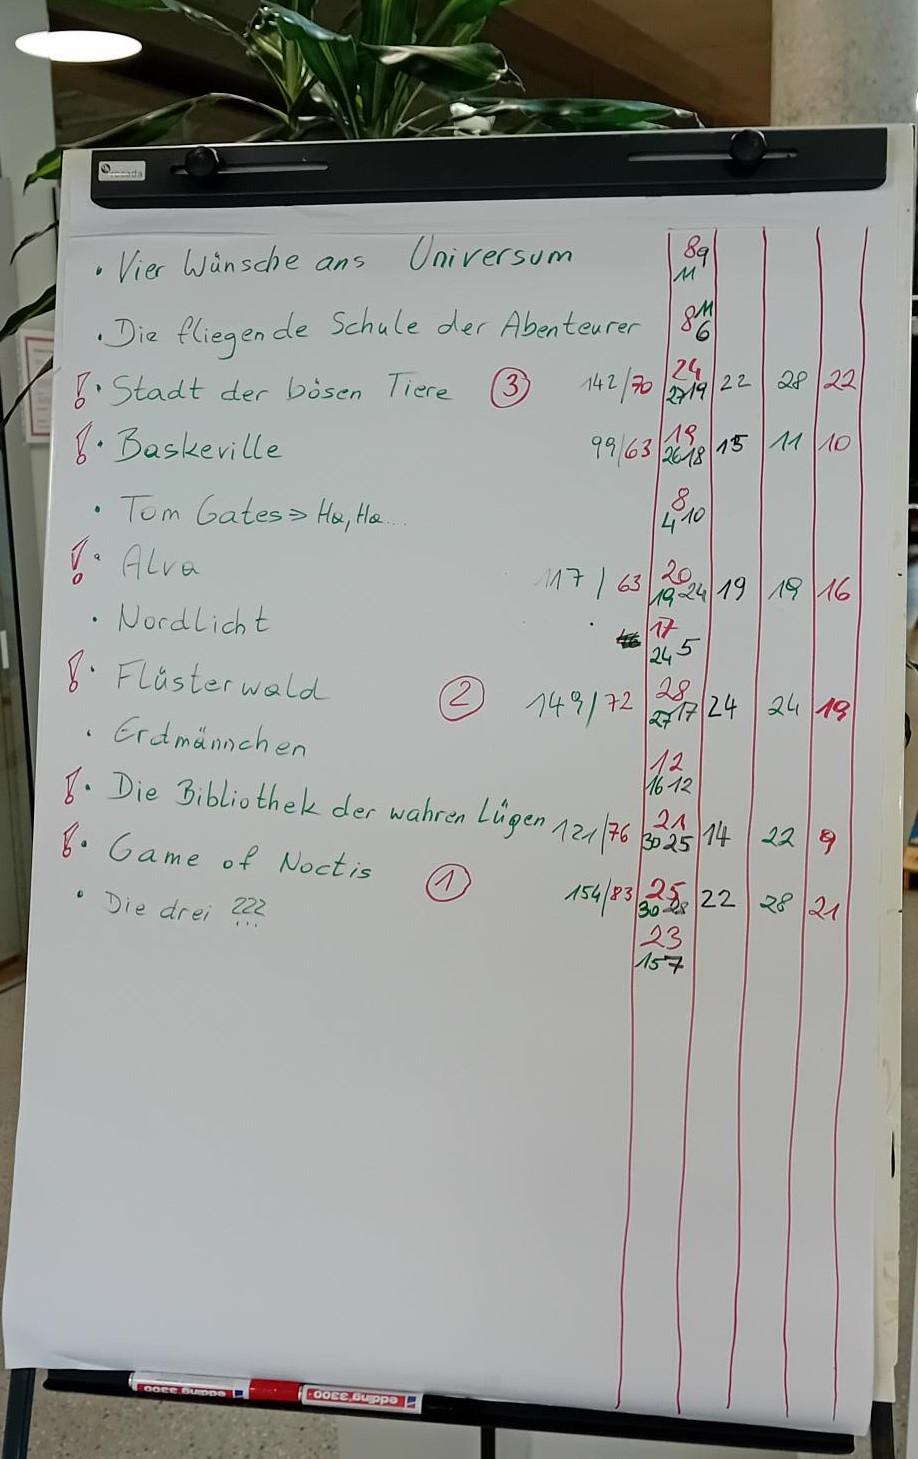 • Vier Wünsche ans Universum 8 9
11
• Die fliegende Schule der Abenteurer 8 11
6
! • Stadt der bösen Tiere ③ 142/70 24 22 28 22
27 19
! • Baskeville 99/63 19 15 11 10
26 18
• Tom Gates => Ha, Ha... 8
4 10
! • Alva 117 / 63 20 19 19 16
19 24
• Nordlicht 17
24 5
! • Flüsterwald ② 149/72 28 24 24 19
27 17
• Erdmännchen 12
16 12
! • Die Bibliothek der wahren Lügen 121/76 21 14 22 9
30 25
! • Game of Noctis ① 154/83 25 22 28 21
30 28
• Die drei ??? 23
15 7
edding 3300
edding 3300